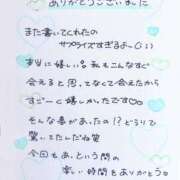 ありがとうございました
また書いてくれたの
サプライズすぎるよー(;;)
本当に嬉しい。私もこんなすぐ
会えると思ってなくて会えたから
すごーく嬉しかったです♡
そんな事があったの!?どるりで
驚いてたんだね笑
今回もあっという間の
楽しい時間をありがとう